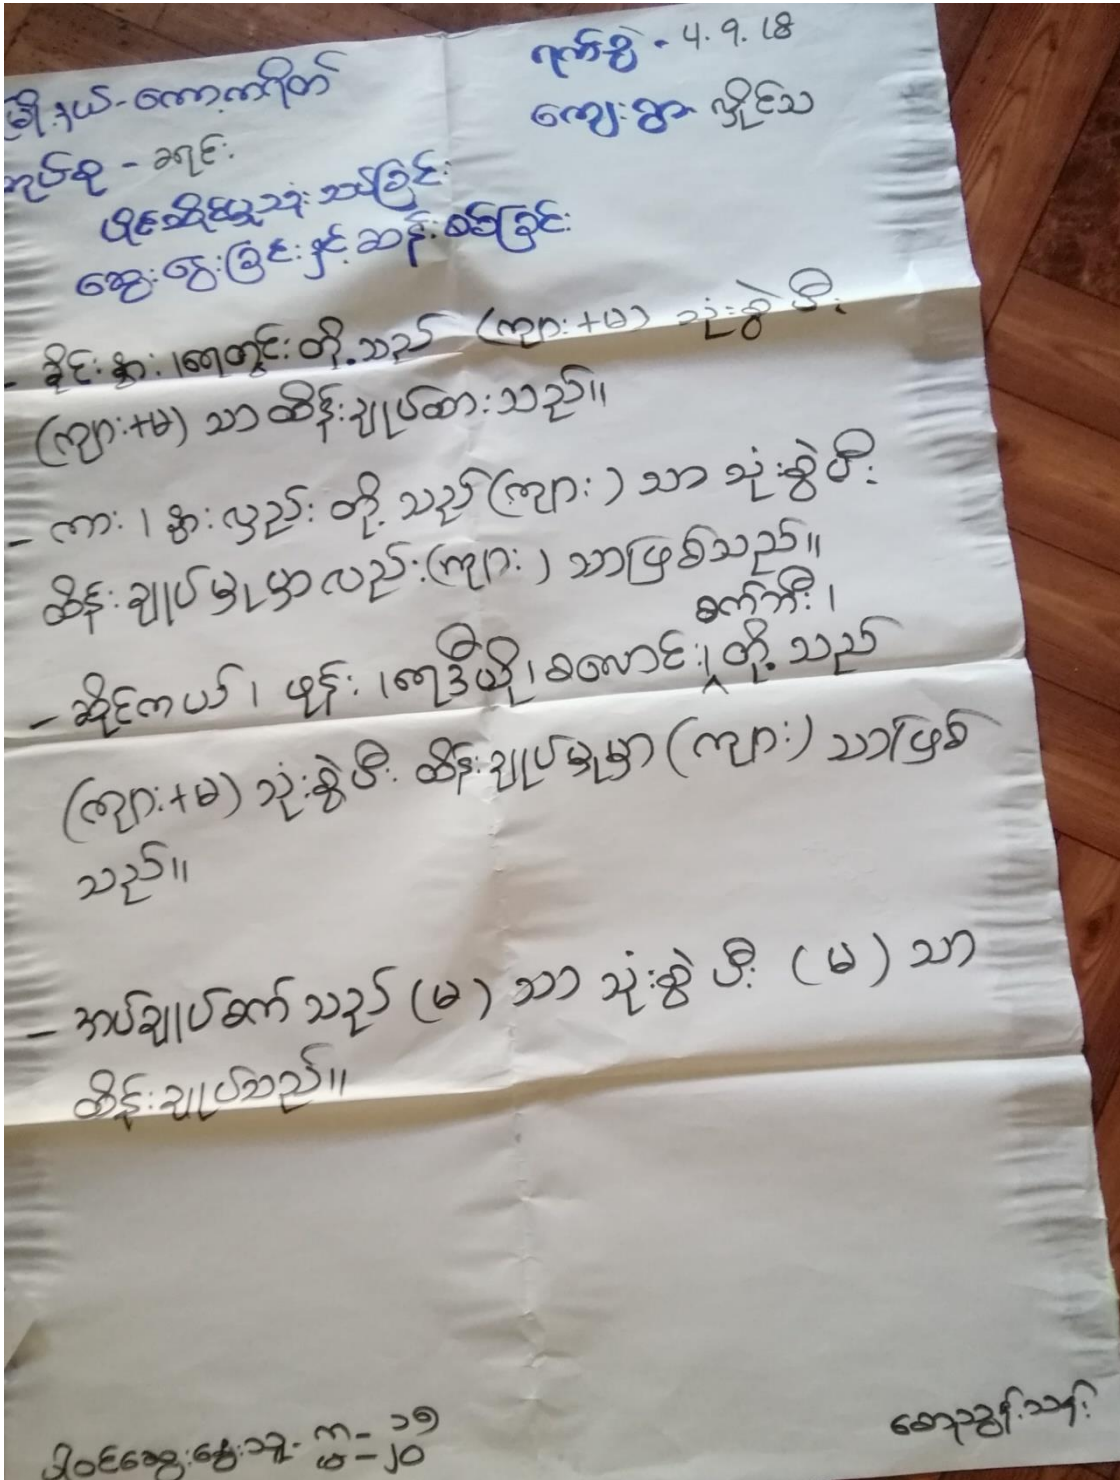 မြို့နယ်-ကော့ကရိတ် ရက်စွဲ - 4.9.18
အုပ်စု - ခရင်း ကျေးရွာ- လှိုင်သ
ပိုင်ဆိုင်မှုသုံးသပ်ခြင်း
ဆွေးနွေးခြင်းနှင့်ဆန်းစစ်ခြင်း
- ခိုင်းနွား၊ ရေတွင်းတို့သည် (ကျား+မ) သုံးစွဲပြီး
(ကျား+မ) သာထိန်းချုပ်ထားသည်။
- ကား၊ နွားလှည်းတို့သည် (ကျား) သာ သုံးစွဲပြီး
ထိန်းချုပ်မှုမှာလည်း (ကျား) သာဖြစ်သည်။
စက်ဘီး၊
- ဆိုင်ကယ်၊ ဖုန်း၊ ရေဒီယို၊ စလောင်း၊ တို့သည်
(ကျား+မ) သုံးစွဲပြီး ထိန်းချုပ်မှုမှာ (ကျား) သာဖြစ်
သည်။
- အပ်ချုပ်စက်သည် (မ) သာ သုံးစွဲပြီး (မ) သာ
ထိန်းချုပ်သည်။
ပါဝင်ဆွေးနွေးသူ- ကျ - ၁၅
မ - ၂၀